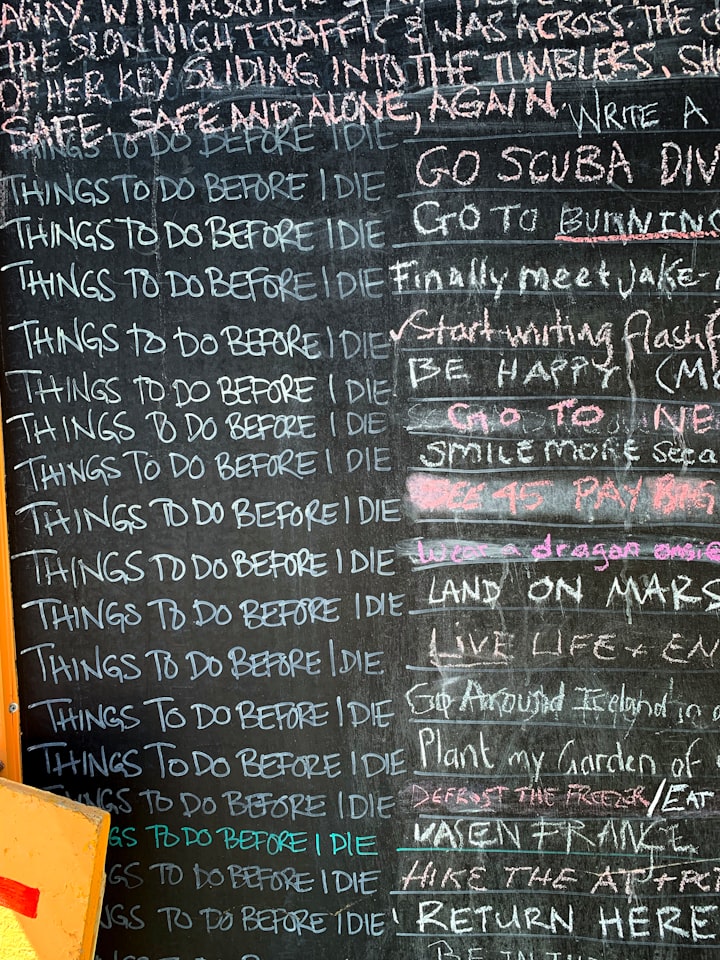 AWAY. WITH
THE SLOW NIGHT TRAFFIC & WAS ACROSS THE
OF HER KEY SLIDING INTO THE TUMBLERS. SH
SAFE. SAFE AND ALONE, AGAIN.
THINGS TO DO BEFORE I DIE WRITE A
THINGS TO DO BEFORE I DIE GO SCUBA DIV
THINGS TO DO BEFORE I DIE GO TO BURNING
THINGS TO DO BEFORE I DIE Finally meet Jake-
THINGS TO DO BEFORE I DIE Start writing flash f
THINGS TO DO BEFORE I DIE BE HAPPY (MO
THINGS TO DO BEFORE I DIE GO TO NE
THINGS TO DO BEFORE I DIE SMILE MORE
THINGS TO DO BEFORE I DIE SEE 45 PAY
THINGS TO DO BEFORE I DIE Wear a dragon onsie
THINGS TO DO BEFORE I DIE LAND ON MARS
THINGS TO DO BEFORE I DIE LIVE LIFE + EN
THINGS TO DO BEFORE I DIE Go Around Iceland in a
THINGS TO DO BEFORE I DIE Plant my Garden of
THINGS TO DO BEFORE I DIE DEFROST THE FREEZER/EAT
GS TO DO BEFORE I DIE FRANCE
GS TO DO BEFORE I DIE HIKE THE AT + PC
NGS TO DO BEFORE I DIE RETURN HERE
BE IN